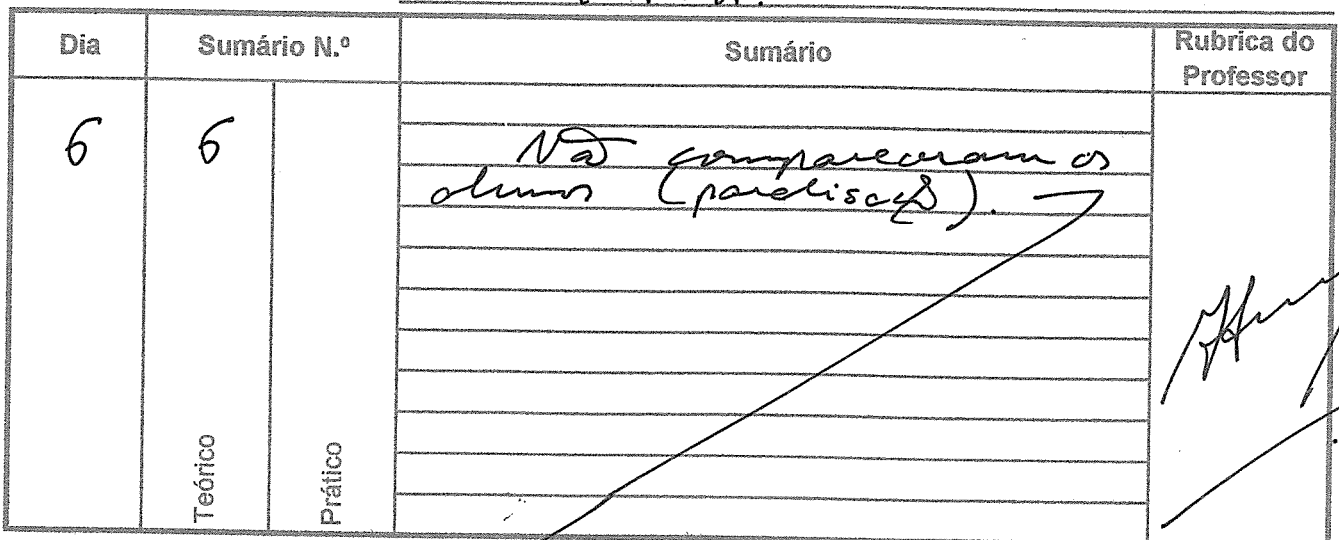 Dia Sumário N.º Sumário Rubrica do
Professor
6 6 Não compareceram os
alunos (paralisação).
Teórico Prático